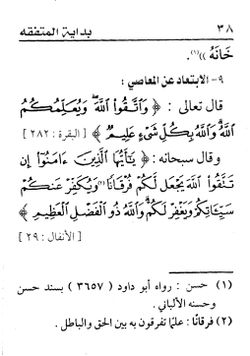 ٣٨ بداية المتفقه
خَانَهُ »(١).
٩- الابتعاد عن المعاصي :
قال تعالى : ﴿ وَاتَّقُوا اللَّهَ وَيُعَلِّمُكُمُ
اللَّهُ وَاللَّهُ بِكُلِّ شَيْءٍ عَلِيمٌ ﴾ [ البقرة : ٢٨٢ ]
وقال سبحانه : ﴿ يَا أَيُّهَا الَّذِينَ ءَامَنُوا إِن
تَتَّقُوا اللَّهَ يَجْعَل لَّكُمْ فُرْقَانًا(٢) وَيُكَفِّرْ عَنكُمْ
سَيِّئَاتِكُمْ وَيَغْفِرْ لَكُمْ وَاللَّهُ ذُو الْفَضْلِ الْعَظِيمِ ﴾
[ الأنفال : ٢٩ ]
(١) حسن : رواه أبو داود ( ٣٦٥٧ ) بسند حسن
وحسنه الألباني .
(٢) فرقانًا : علمًا تفرقون به بين الحق والباطل .